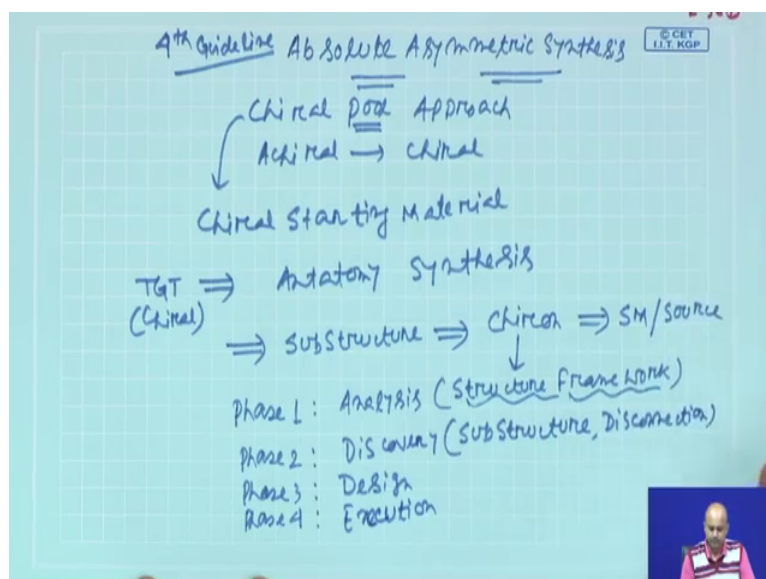 4th Guideline Absolute Asymmetric Synthesis
© CET
I.I.T. KGP
Chiral Pool Approach
Achiral → Chiral
Chiral Starting Material
TGT ⇒ Antatomy Synthesis
(Chiral)
⇒ Substructure ⇒ Chiron ⇒ SM/Source
Phase 1 : Analysis (Structure Framework)
Phase 2 : Discovery (Substructure, Disconnection)
Phase 3 : Design
Phase 4 : Execution